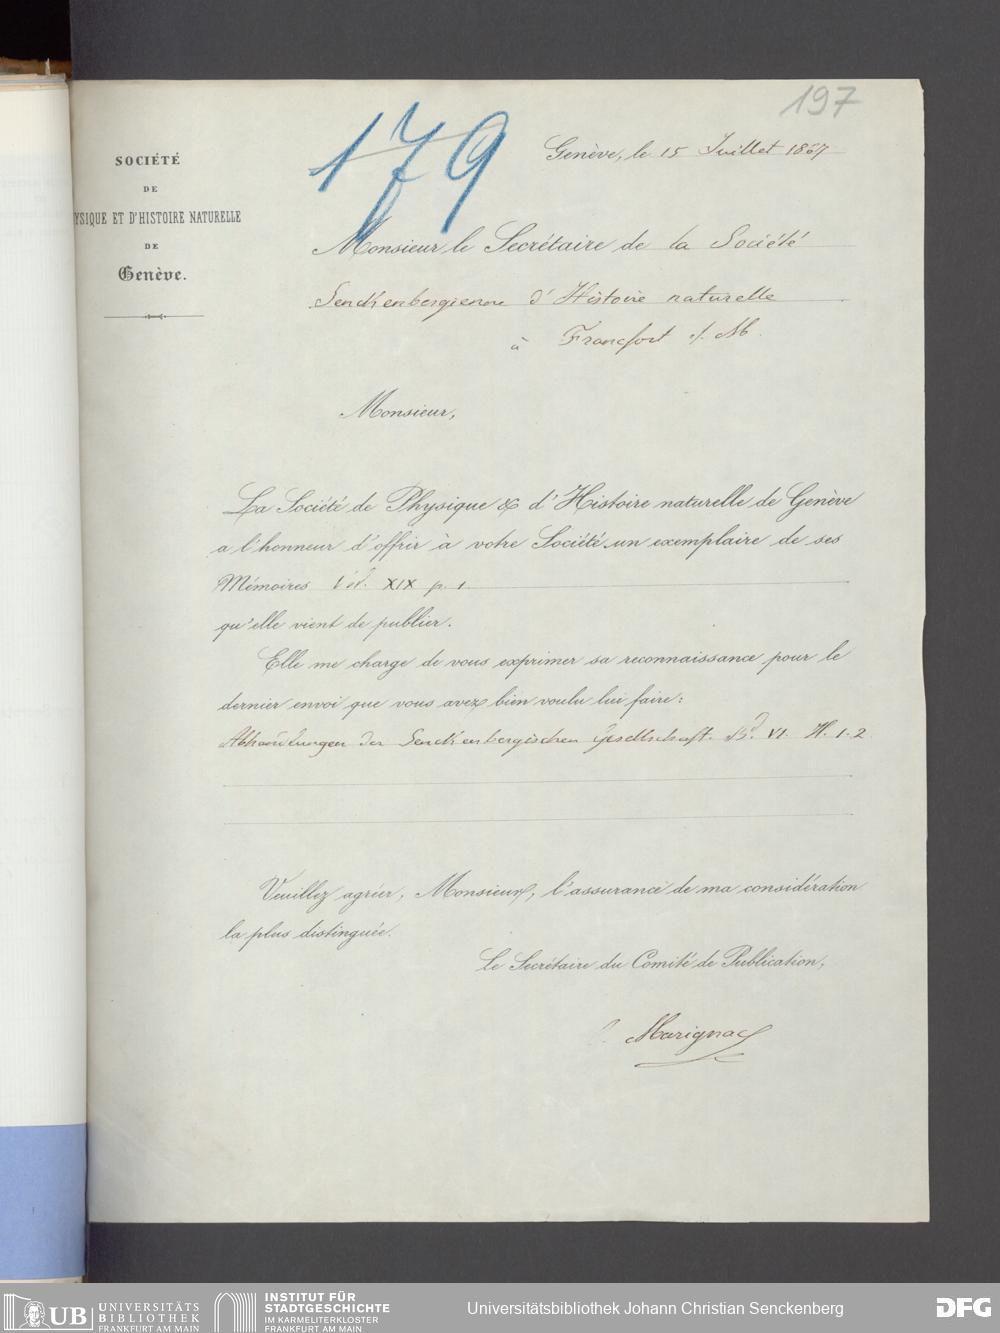 197
179
SOCIÉTÉ
DE
YSIQUE ET D'HISTOIRE NATURELLE
DE
Genève.
Genève, le 15 Juillet 1867
Monsieur le Secrétaire de la Société
Senckenbergienne d'Histoire naturelle
à Francfort s/. M.
Monsieur,
La Société de Physique & d'Histoire naturelle de Genève
a l'honneur d'offrir à votre Société un exemplaire de ses
Mémoires Vol. XIX p. 1
qu'elle vient de publier.
Elle me charge de vous exprimer sa reconnaissance pour le
dernier envoi que vous avez bien voulu lui faire:
Abhandlungen der Senckenbergischen Gesellschaft. Bd. VI. H. 1. 2
Veuillez agréer, Monsieur, l'assurance de ma considération
la plus distinguée.
Le Secrétaire du Comité de Publication,
Marignac
UB UNIVERSITÄTS
BIBLIOTHEK
FRANKFURT AM MAIN
INSTITUT FÜR
STADTGESCHICHTE
IM KARMELITERKLOSTER
FRANKFURT AM MAIN
Universitätsbibliothek Johann Christian Senckenberg
DFG